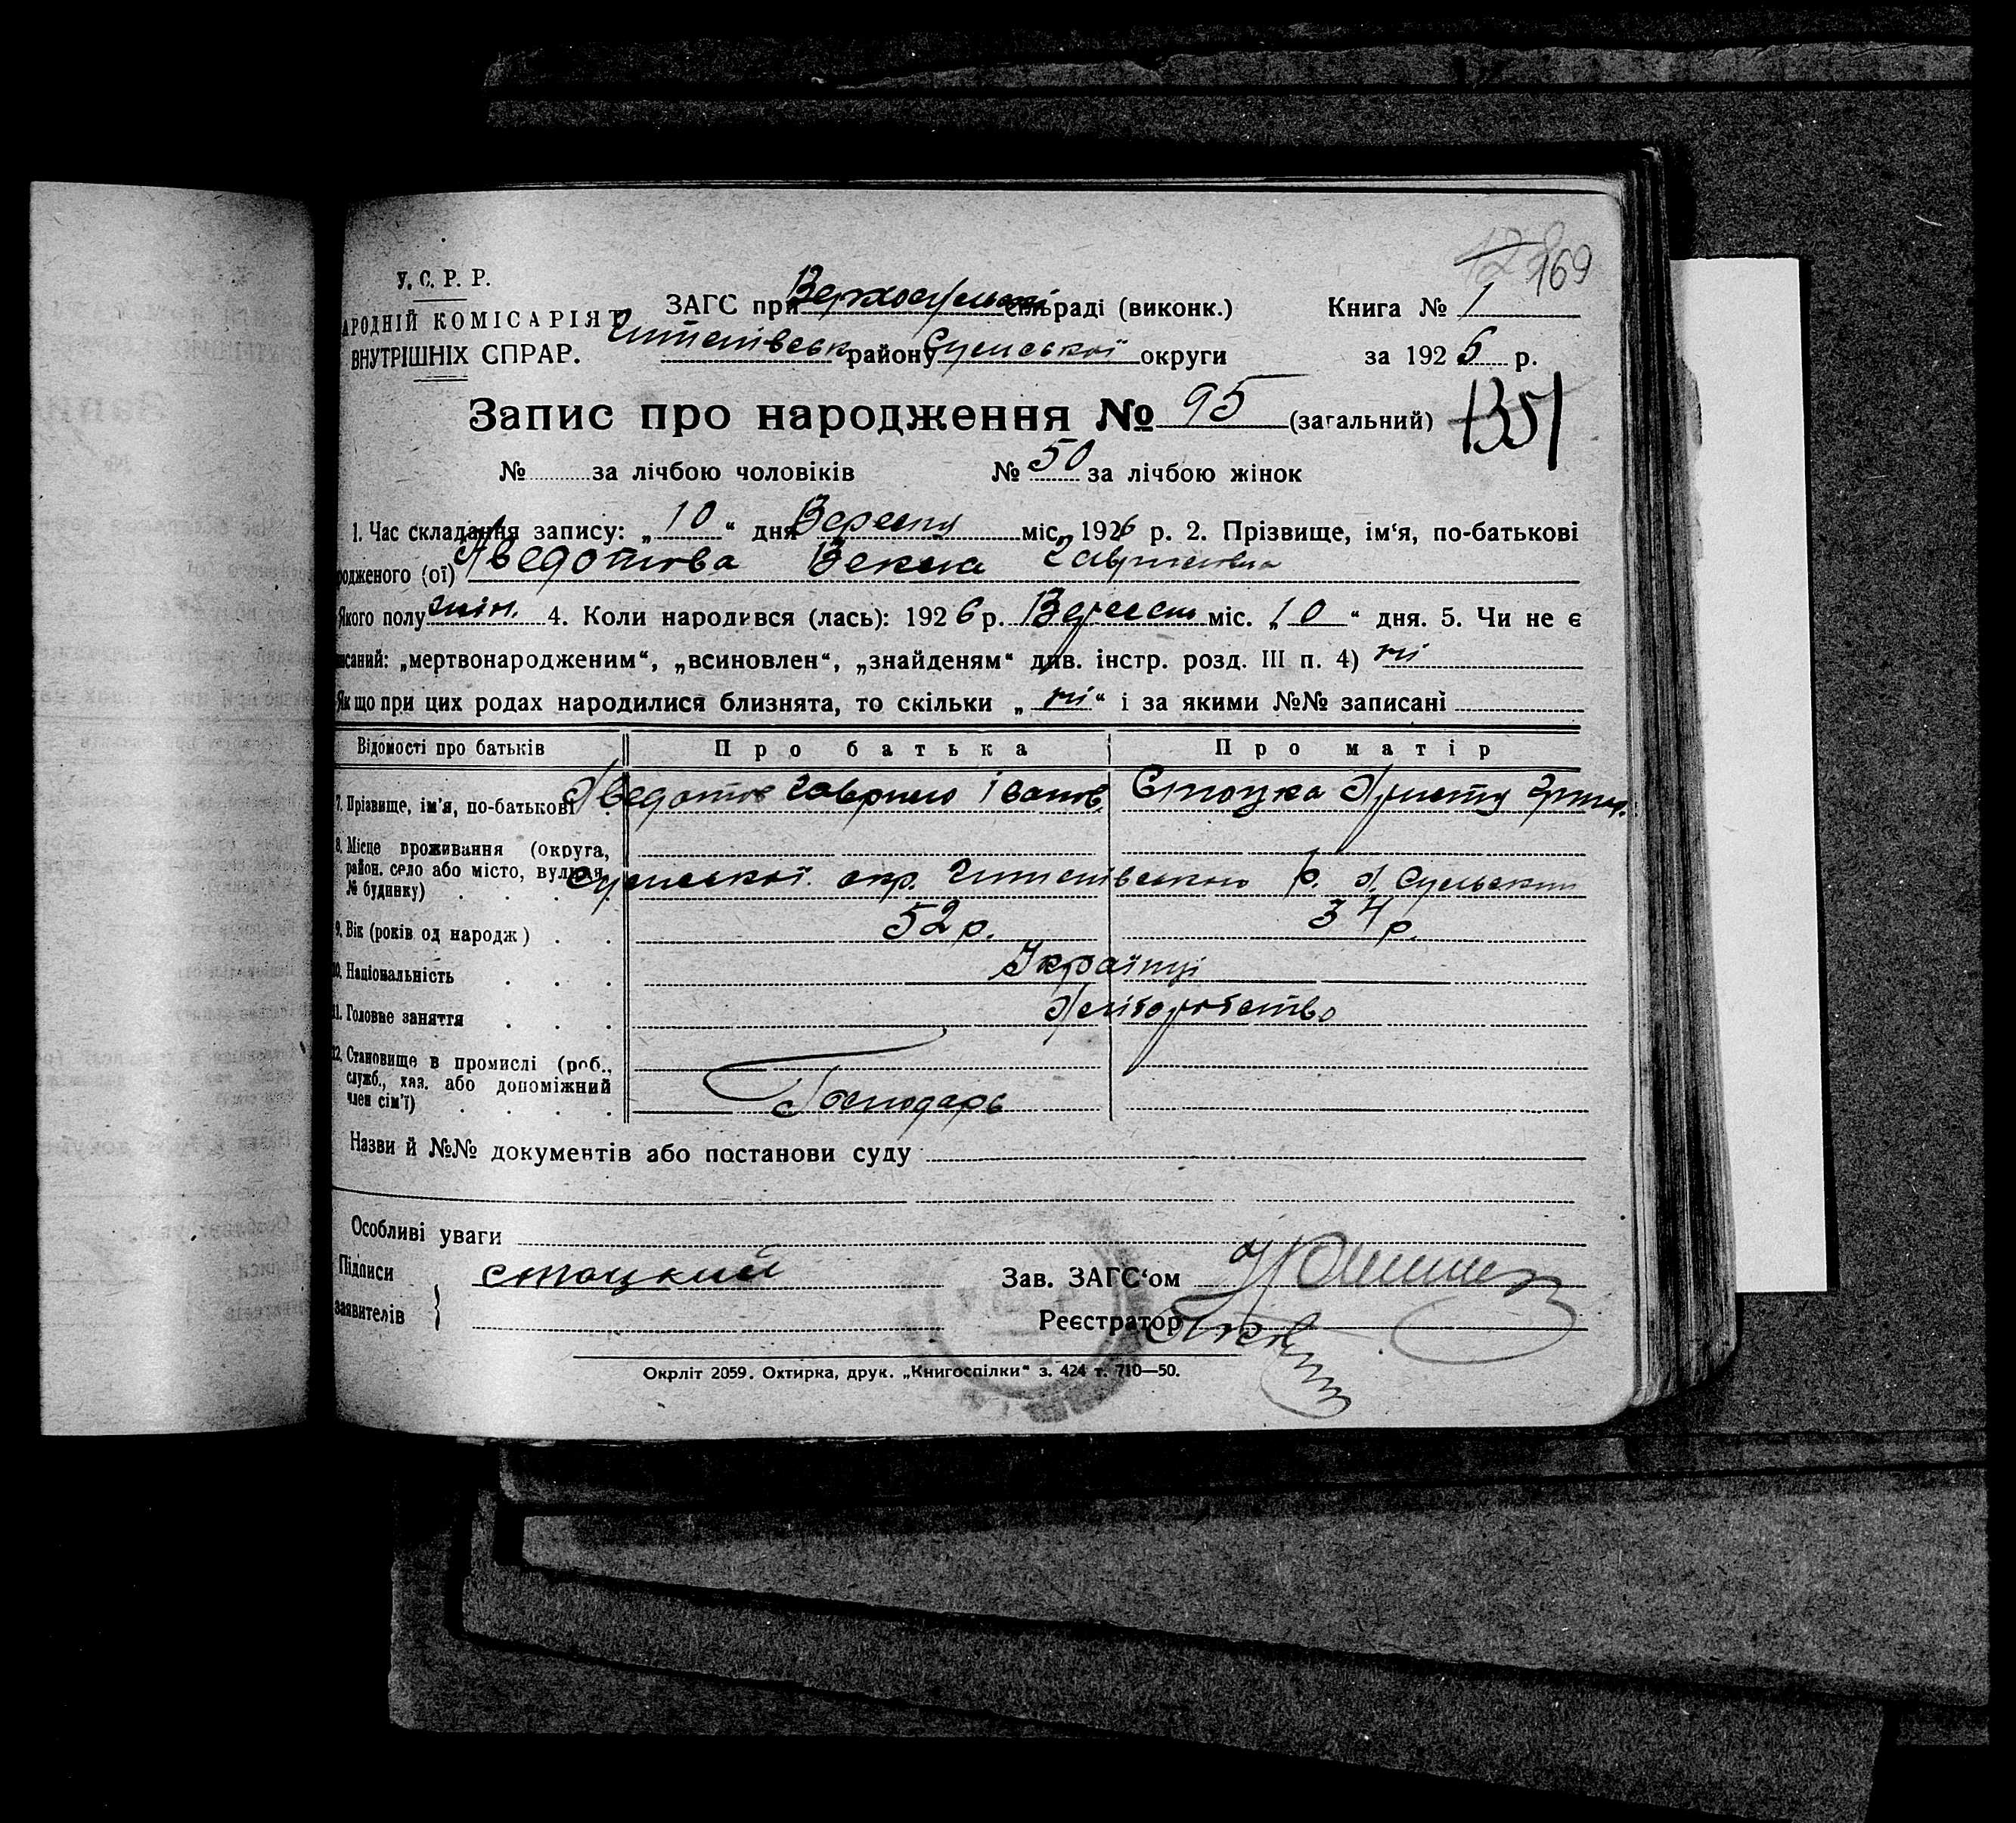 169
У. С. Р. Р.
АРОДНІЙ КОМІСАРІЯТ
ВНУТРІШНІХ СПРАР.
ЗАГС при Верхосульській раді (виконк.)
району Сумської округи
Книга № 1
за 1926 р.
Запис про народження № 95 (загальний)
1351
№ за лічбою чоловіків № 50 за лічбою жінок
1. Час складання запису: „10“ дня Вересня міс. 1926 р. 2. Прізвище, ім‘я, по-батькові
родженого (ої) Хведотова Гаврилівна
Якого полу жін. 4. Коли народився (лась): 1926 р. Вересня міс. „10“ дня. 5. Чи не є
писаний: „мертвонародженим“, „всиновлен“, „знайденям“ див. інстр. розд. III п. 4) ні
Якщо при цих родах народилися близнята, то скільки „ні“ і за якими №№ записані
Відомості про батьків Про батька Про матір
7. Прізвище, ім‘я, по-батькові Хведотов Гаврило Іванов. Стоцка
8. Місце проживання (округа, район. село або місто, вулиця, № будинку) Сумської окр. р. х. Сульский
9. Вік (років од народж) 52 р. 34 р.
10. Національність Українці
11. Головне заняття Хліборобство
12. Становище в промислі (роб., служб., хаз. або допоміжний член сім‘ї) Господарь
Назви й №№ документів або постанови суду
Особливі уваги
Підписи заявителів } Стоцкий
Зав. ЗАГС‘ом
Реєстратор
Окрліт 2059. Охтирка, друк. „Книгоспілки“ з. 424 т. 710—50.